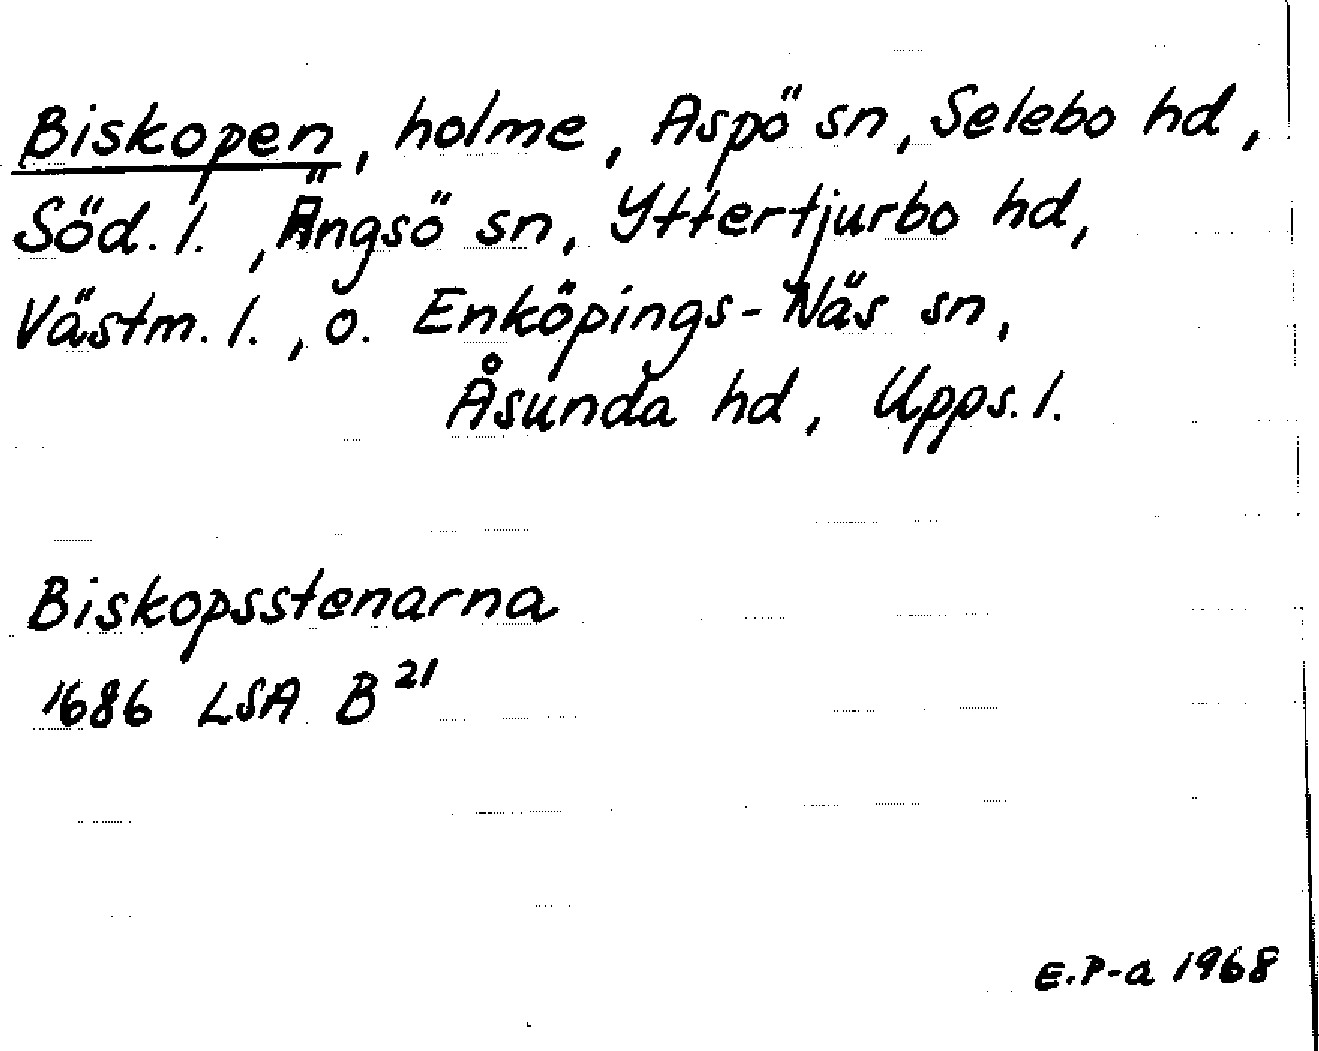 Biskopen, holme, Aspö sn, Selebo hd,
Söd. l., Ängsö sn, Yttertjurbo hd,
Västm. l., o. Enköpings-Näs sn,
Åsunda hd, Upps. l.
Biskopsstenarna
1686 LSA B 21
E.P-a 1968